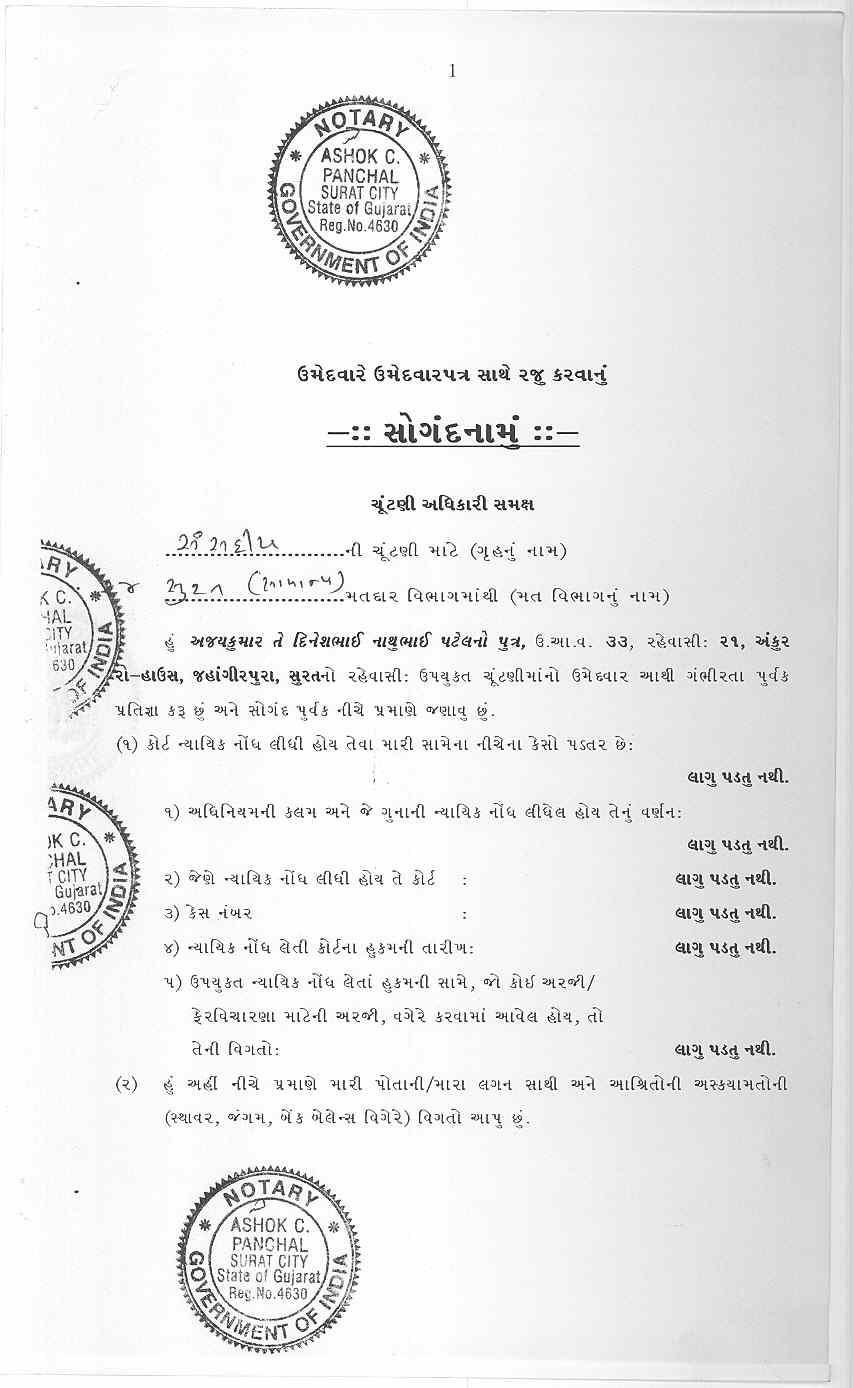 1
NOTARY
ASHOK C.
PANCHAL
SURAT CITY
State of Gujarat
Reg.No.4630
GOVERNMENT OF INDIA
ઉમેદવારે ઉમેદવારપત્ર સાથે રજુ કરવાનું
-:: સોગંદનામું ::-
ચૂંટણી અધિકારી સમક્ષ
..........................ની ચૂંટણી માટે (ગૃહનું નામ)
સુરત (સામાન્ય) મતદાર વિભાગમાંથી (મત વિભાગનું નામ)
હું અજયકુમાર તે દિનેશભાઈ નાથુભાઈ પટેલનો પુત્ર, ઉ.આ.વ. ૩૩, રહેવાસી: ૨૧, અંકુર
રો-હાઉસ, જહાંગીરપુરા, સુરતનો રહેવાસી: ઉપયુકત ચૂંટણીમાંનો ઉમેદવાર આથી ગંભીરતા પુર્વક
પ્રતિજ્ઞા કરૂ છું અને સોગંદ પુર્વક નીચે પ્રમાણે જણાવુ છું.
(૧) કોર્ટ ન્યાયિક નોંધ લીધી હોય તેવા મારી સામેના નીચેના કેસો પડતર છે:
લાગુ પડતુ નથી.
૧) અધિનિયમની કલમ અને જે ગુનાની ન્યાયિક નોંધ લીધેલ હોય તેનું વર્ણન:
લાગુ પડતુ નથી.
૨) જેણે ન્યાયિક નોંધ લીધી હોય તે કોર્ટ : લાગુ પડતુ નથી.
૩) કેસ નંબર : લાગુ પડતુ નથી.
૪) ન્યાયિક નોંધ લેતી કોર્ટના હુકમની તારીખ: લાગુ પડતુ નથી.
૫) ઉપયુકત ન્યાયિક નોંધ લેતાં હુકમની સામે, જો કોઈ અરજી/
ફેરવિચારણા માટેની અરજી, વગેરે કરવામાં આવેલ હોય, તો
તેની વિગતો: લાગુ પડતુ નથી.
(૨) હું અહીં નીચે પ્રમાણે મારી પોતાની/મારા લગન સાથી અને આશ્રિતોની અસ્કયામતોની
(સ્થાવર, જંગમ, બેંક બેલેન્સ વિગેરે) વિગતો આપુ છું.
NOTARY
ASHOK C.
PANCHAL
SURAT CITY
State of Gujarat
Reg.No.4630
GOVERNMENT OF INDIA